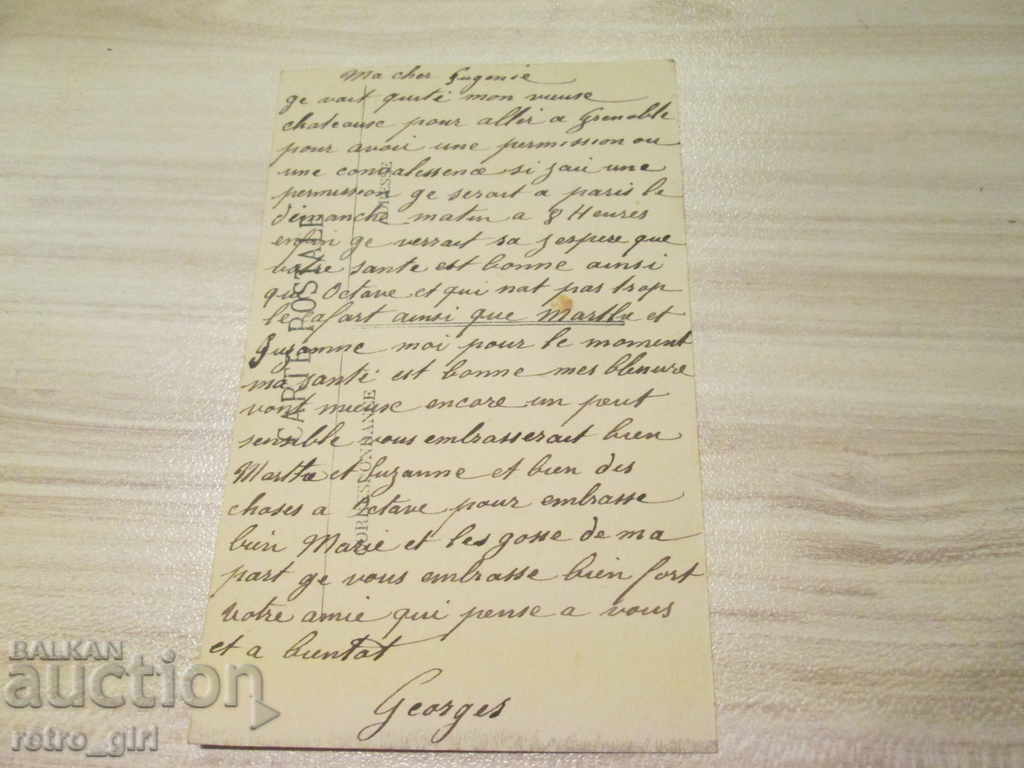 Ma cher Eugenie
ge vait quité mon vieuse
chateause pour aller a Grenoble
pour avoir une permission ou
une convalessence si jai une
permission ge serait a paris le
dimanche matin a 8 Heures
enfin ge verrait sa jespere que
votre sante est bonne ainsi
que Octave et qui nat pas trop
le cafart ainsi que Marthe et
Suzanne moi pour le moment
ma santé est bonne mes blesure
vont mieux encore un peut
sensible vous embrasserait bien
Marthe et Suzanne et bien des
choses a Octave pour embrasse
bien Marie et les gosse de ma
part ge vous embrasse bien fort
votre amie qui pense a vous
et a bientot
Georges
CARTE POSTALE
CORRESPONDANCE
ADRESSE
BALKAN
auction
retro_girl